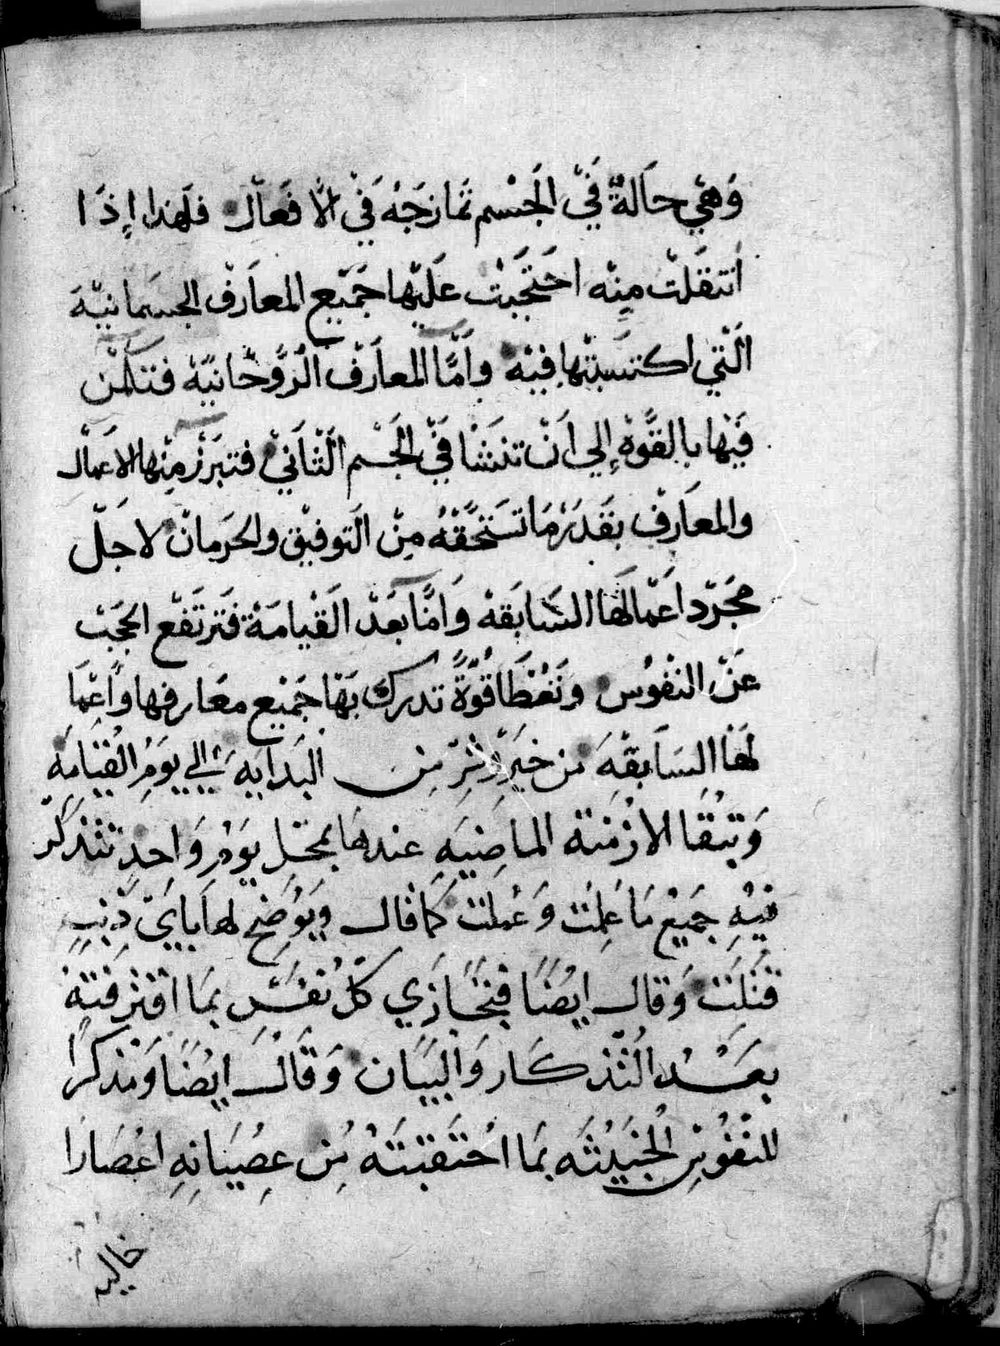 وَهْيَ حالَةٌ فَيْ الجَسْم تمَازجَهُ فَيْ الاَفعَال فلهذا إذَا
انتقلَتْ مِنْه احتجَبَتْ عَليْها جَمَيْع المعاَرفْ الجسمَانيّهَ
الّتي اكتسَبَتْها فيْه وأمَّا المعاَرفْ الرّوُحَانيّهْ فتَكمْن
فَيْها بالقوَّهْ إلي أنْ تنَشَا فَيْ الجسْم الثَاني فتبرَزْ مِنْها الاعمَال
والمعاَرفْ بقَدَرْ مَا تسَتحَقّهُ مِنْ التَوفيْق والحرَمانْ لاجَلْ
مجَرّد اعَمْالهَا السَابَقهْ وَامّا بَعَدْ القَيْامَهْ فَترتَفَعْ الحجَبْ
عَنْ النفوُس وتَعُطَا قُوّةً تدرك بَهَا جَميْع معَارفها وأعْمَا
لهَا السَابقْهَ من خيَرٍ وشرٍّ مِنَ البدَايهِ إلي يوَمِ القْيَامَهِ
وَتبْقَا الازْمنَة الماضِيَهِ عندهَا بمحَلِ يوَمٍ وَاحدٍ تتَذكرّ
فيْهِ جميَعْ مَا عَلِمَتْ وَعْملتْ كمَا قال ويوَضِح لها بَايَ ذَنبٍ
قتلَتْ وَقال ايضًا فتجَازَي كلّ نفسٍ بمَا اقترفتهُ
بعَدْ التّذكَار وَالبيَان وَقَال ايضًا وَتذكرًا
للنفوُسِ الخبَيْثَه بمَا احْتقَبتَهْ مِن عِصيَانهِ اعْصَارَا
خاليه